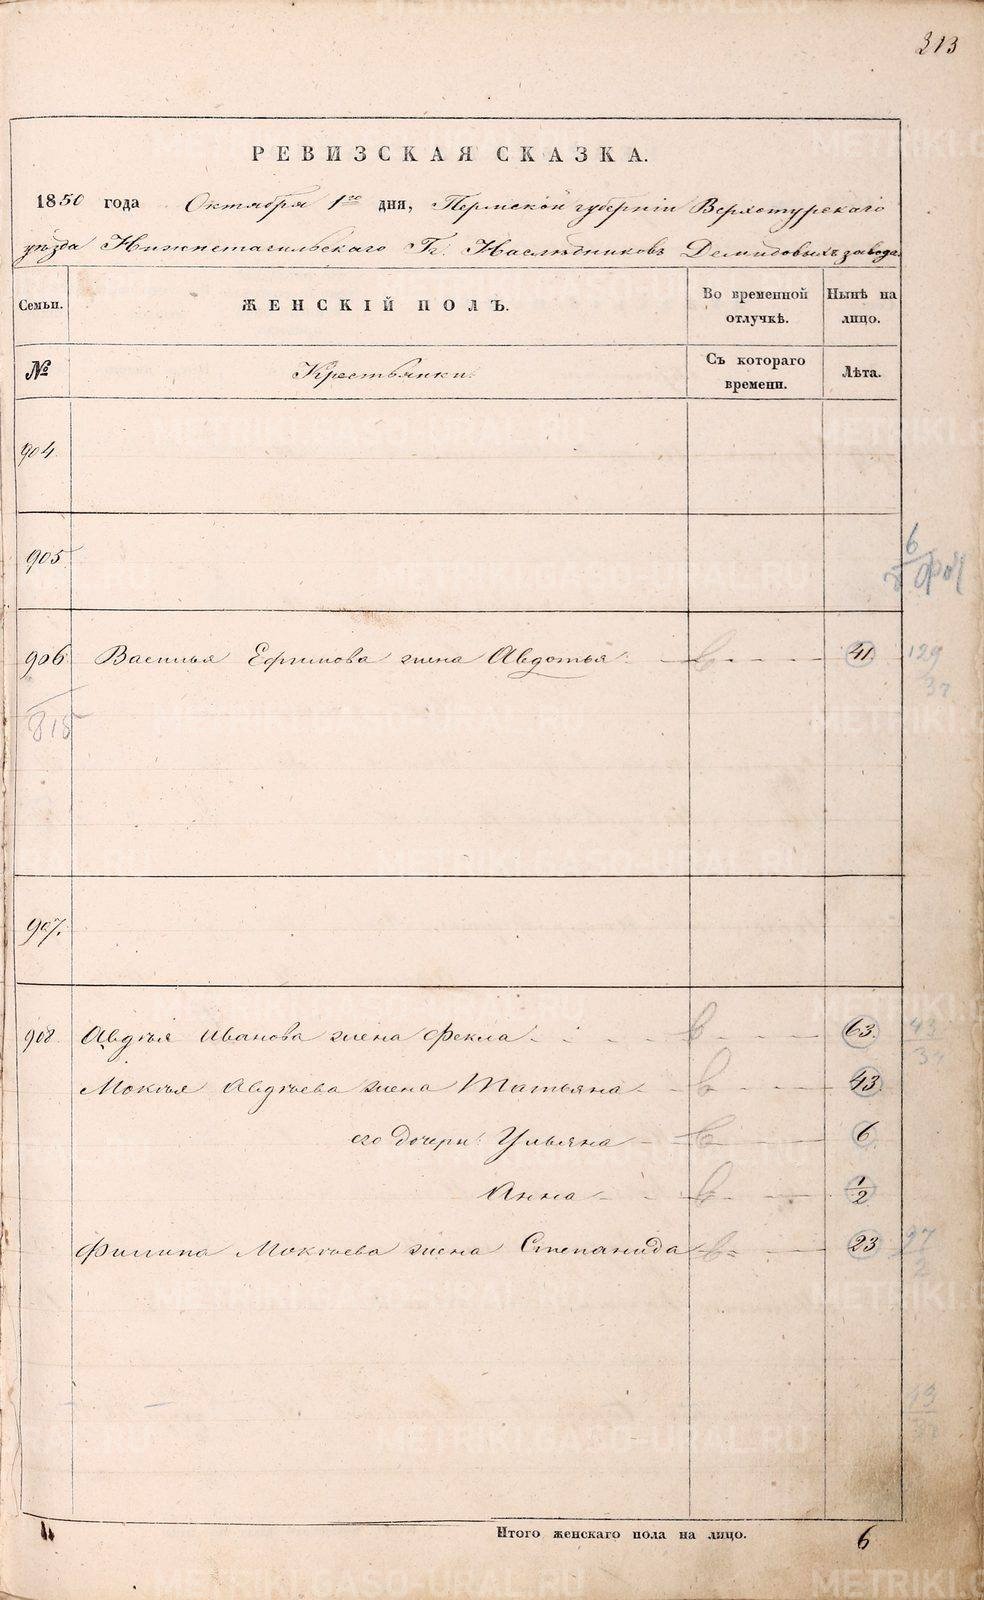 313
РЕВИЗСКАЯ СКАЗКА.
1850 года Октября 1го дня, Пермской губернiи Верхотурскаго
уѣзда Нижнетагильскаго Гг. Наслѣдниковъ Демидовыхъ завода
Семьи. ЖЕНСКIЙ ПОЛЪ. Во временной отлучкѣ. Нынѣ на лицо.
№ Крестьянки. Съ котораго времени. Лѣта.
904.
905.
6
906. Василья Ефимова жена Авдотья 41. 129
37
815
907.
908. Авдѣя Иванова жена Фекла 63. 43
37
Мокѣя Авдѣева жена Татьяна 43
его дочери: Ульяна 6
Анна 1/2
Филипа Мокѣева жена Степанида 23 27
2
43
37
Итого женскаго пола на лицо. 6
METRIKI.GASO-URAL.RU